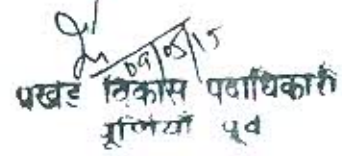 09/05/15
प्रखंड विकास पदाधिकारी
पूर्णियाँ पूर्व